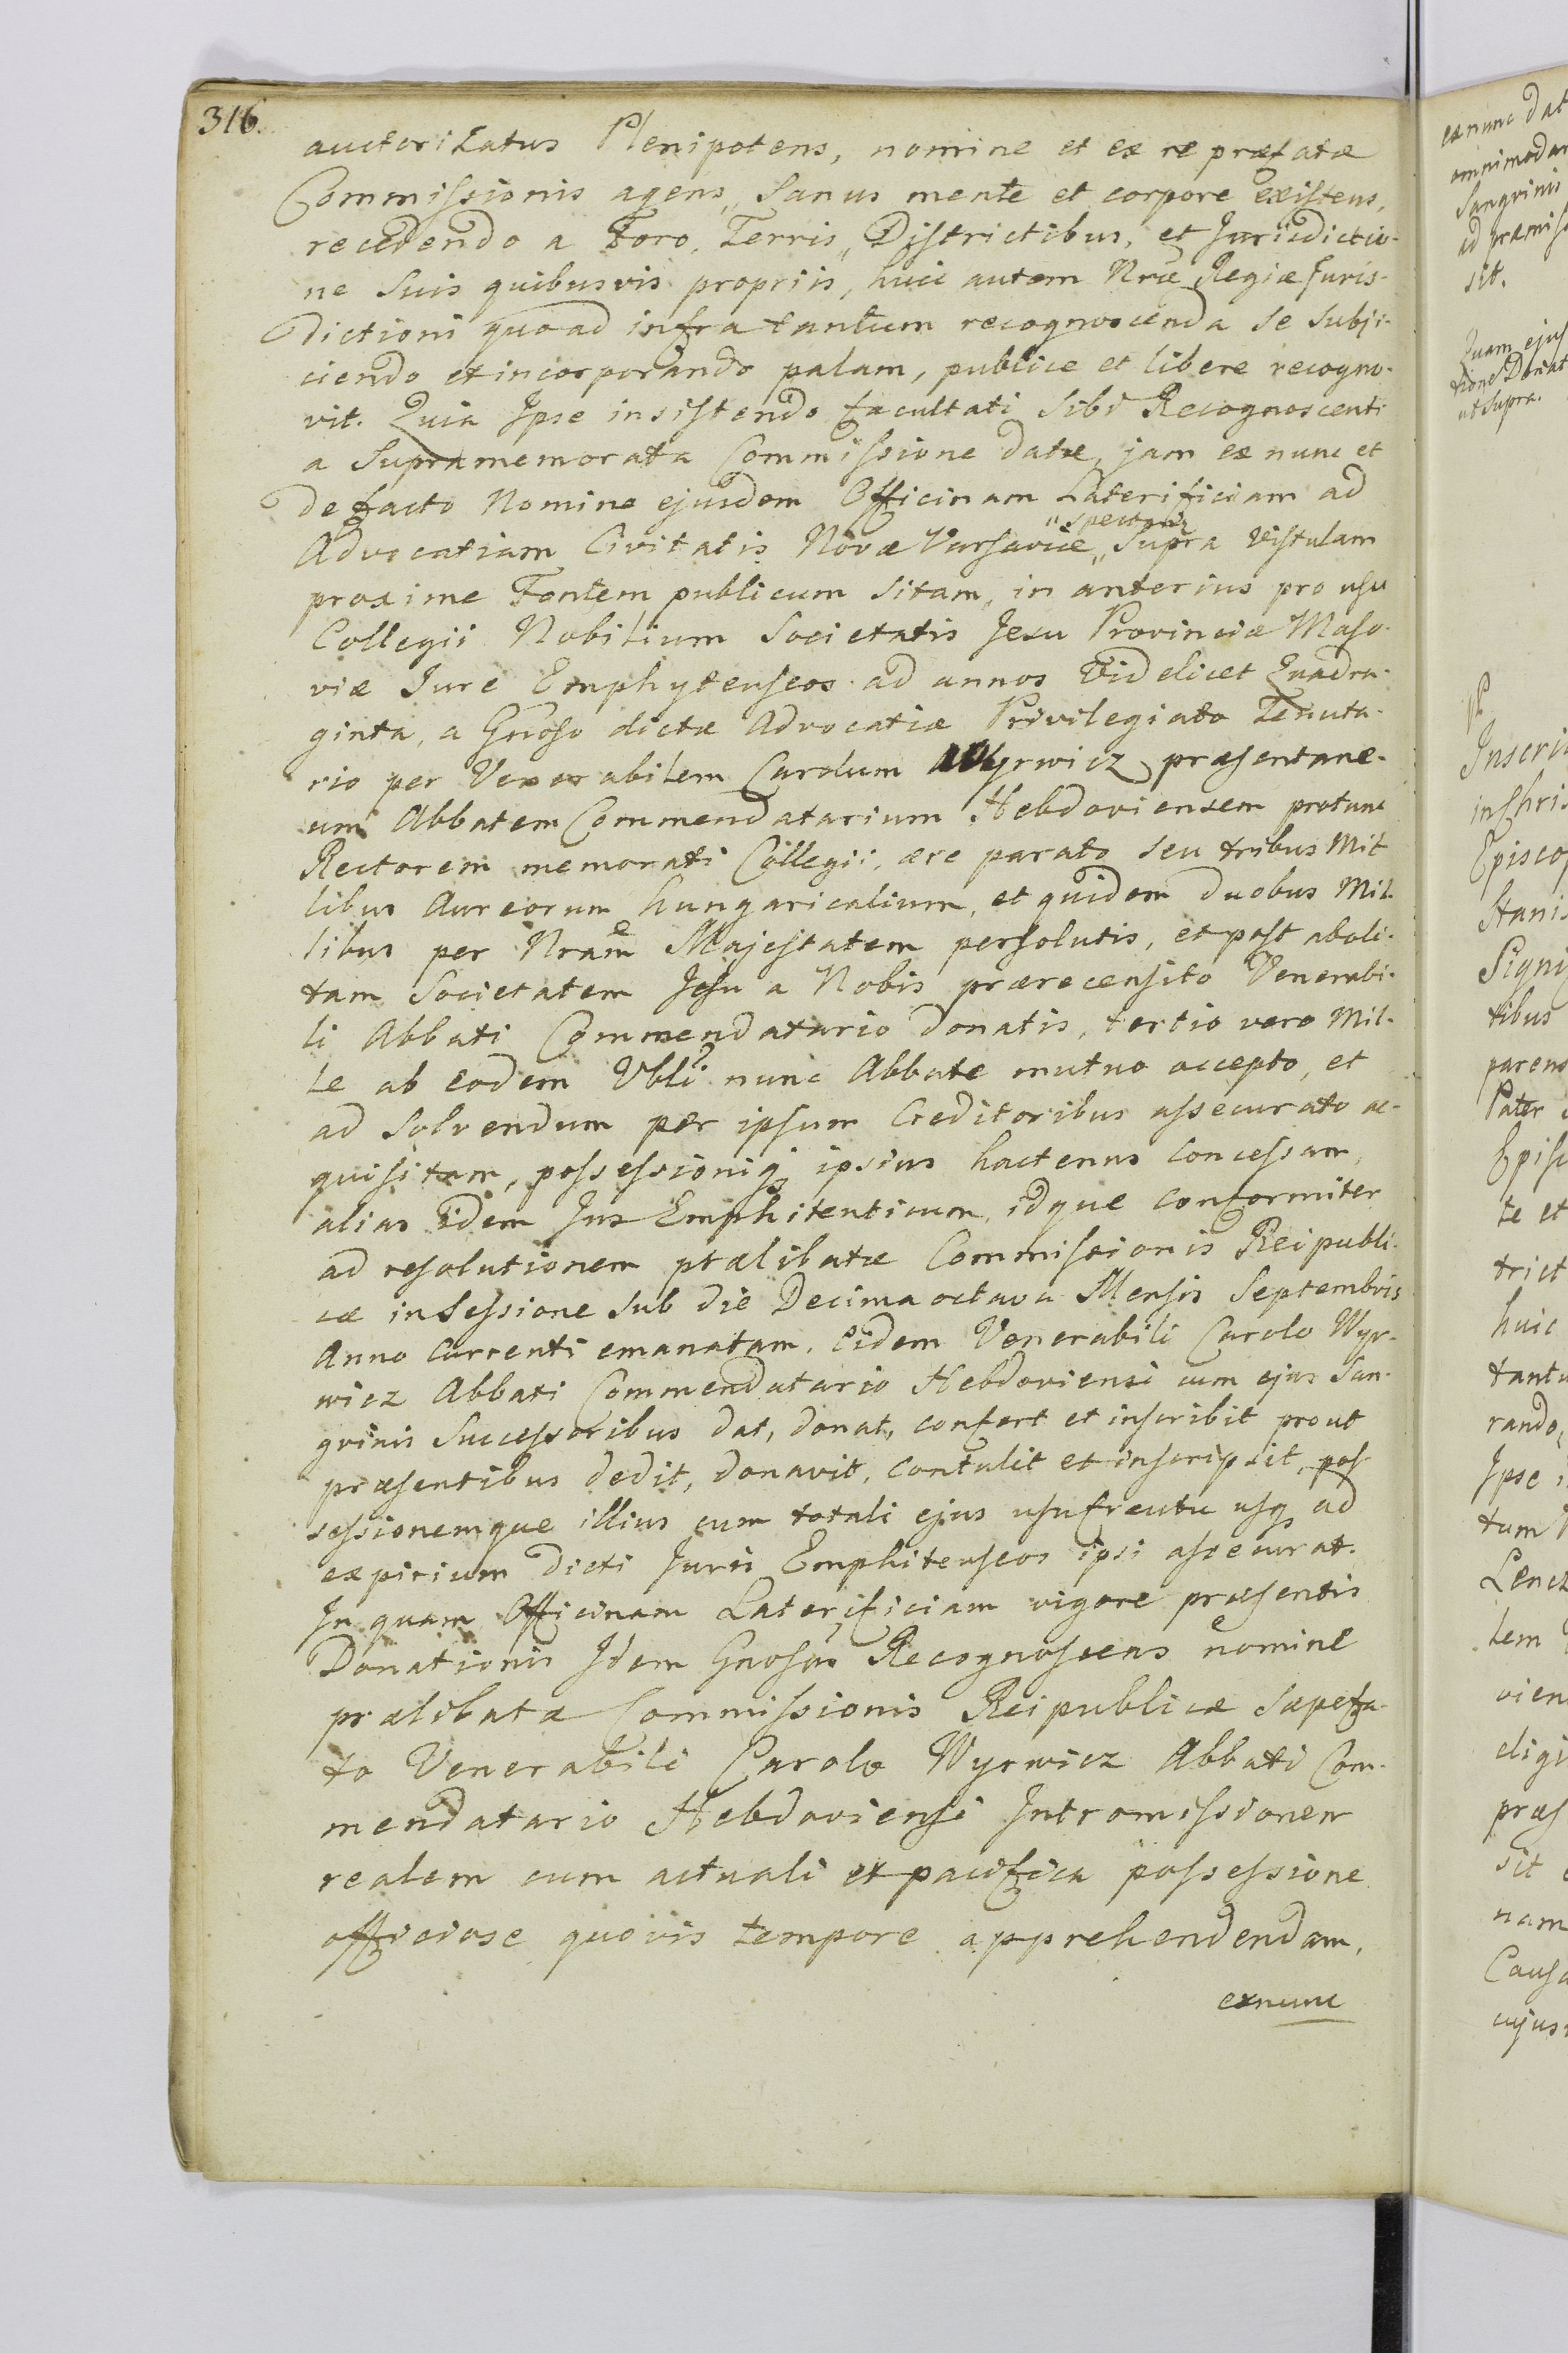 316.
auctoritatus Plenipotens, nomine et ex re præfatæ
Commissionis agens, Sanus mente et corpore existens,
recedendo a Foro, Terris, Districtibus, et Jurisdictio-
ne suis quibusvis propriis, huic autem Nræ Regiæ Juris-
dictioni quoad infra tantum recognoscenda se subji-
ciendo et incorporando palam, publice et libere recogno-
vit. Quia Ipse insistendo facultati sibi Recognoscenti
a Supramemorata Commissione datæ, jam ex nunc et
de facto Nomine ejusdem Officinam Laterificiam ad
Advocatiam Civitatis Novæ Varsaviæ "spectan̄" Supra Vistulam
proxime Fontem publicum sitam, in anterius pro usu
Collegii Nobilium Societatis Jesu Provinciæ Maso-
viæ Jure Emphyteuseos ad annos Videlicet Quadra-
ginta, a Gnoso dictæ Advocatiæ Privilegiato Tenuta-
rio per Venerabilem Carolum Wyrwicz præsentane-
um Abbatem Commendatarium Hebdoviensem protunc
Rectorem memorati Collegii, ære parato seu tribus Mil
libus Aureorum hungaricalium, et quidem duobus Mil-
libus per Nram Majestatem persolutis, et post aboli-
tam Societatem Jesu a Nobis prærecensito Venerabi-
li Abbati Commendatario donatis, tertio vero Mil-
le ab eodem Vbli nunc Abbate mutuo accepto, et
ad solvendum per ipsum Creditoribus assecurato ac-
quisitam, possessioniq; ipsius hactenus concessam,
alias idem Jus Emphiteuticum, idque conformiter
ad resolutionem prælibatæ Commissionis Reipubli-
cæ in Sessione sub die Decima octava Mensis Septembris
Anno currenti emanatam, Eidem Venerabili Carolo Wyr-
wicz Abbati Commendatario Hebdoviensi cum ejus San-
gvinis Successoribus dat, donat, confert et inscribit prout
præsentibus dedit, donavit, contulit et inscripsit, pos
sessionemque illius cum totali ejus usufructu usq; ad
expirium dicti Juris Emphiteuseos ipsi assecurat.
In quam Officinam Laterificiam vigore præsentis
Donationis Idem Gnosus Recognoscens nomine
prælibatæ Commissionis Reipublicæ sæpefa-
to Venerabili Carolo Wyrwicz Abbati Com-
mendatario Hebdoviensi Intromissionem
realem cum actuali et pacifica possessione
officiose quovis tempore apprehendendam,
exnunc
exnunc dat
omnimodam
Sangvinis
ad præmiss
sit.
Quam ejus
tione Donat
ut supra.
Inscri
in Chris
Episcop
Stanis
Signi
tibus
parens
Pater
Episc
te et
trict
huic
tantu
rando,
Ipse i
tum
Lencz
tem
vien
eligi
præs
sit
nam
Causa
cujus